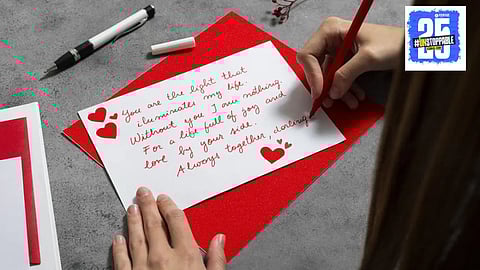 You are the light that
illuminates my life.
Without you I am nothing.
For a life full of joy and
love by your side.
Always together, darling
25
#UNSTOPPABLE